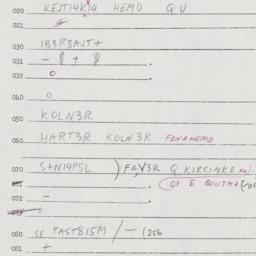 020 KEJTI4K14 HEMD Q U
021
030 IB3RBAUT+
031 - 8 + 8 .
032 0 .
040 0
050 KOLN3R
060 HART3R KOLN3R FINAHEMD
070 S+NI4PSL ) FAV3R Q KIRCINKE
071 . QI E BOUTA
072 -
073
080 SE PAST815M / - (256
081 +